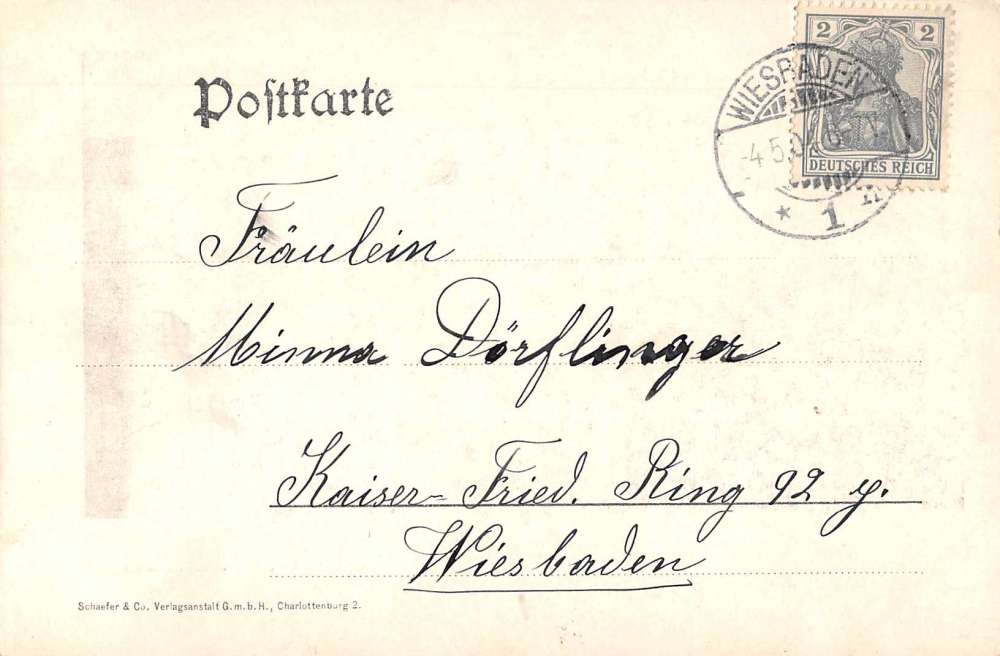 Postkarte
2 2
DEUTSCHES REICH
WIESBADEN
-4.5.0
* 1
Fräulein
Minna Dörflinger
Kaiser-Fried. Ring 92
Wiesbaden
Schaefer & Co. Verlagsanstalt G.m.b.H., Charlottenburg 2.